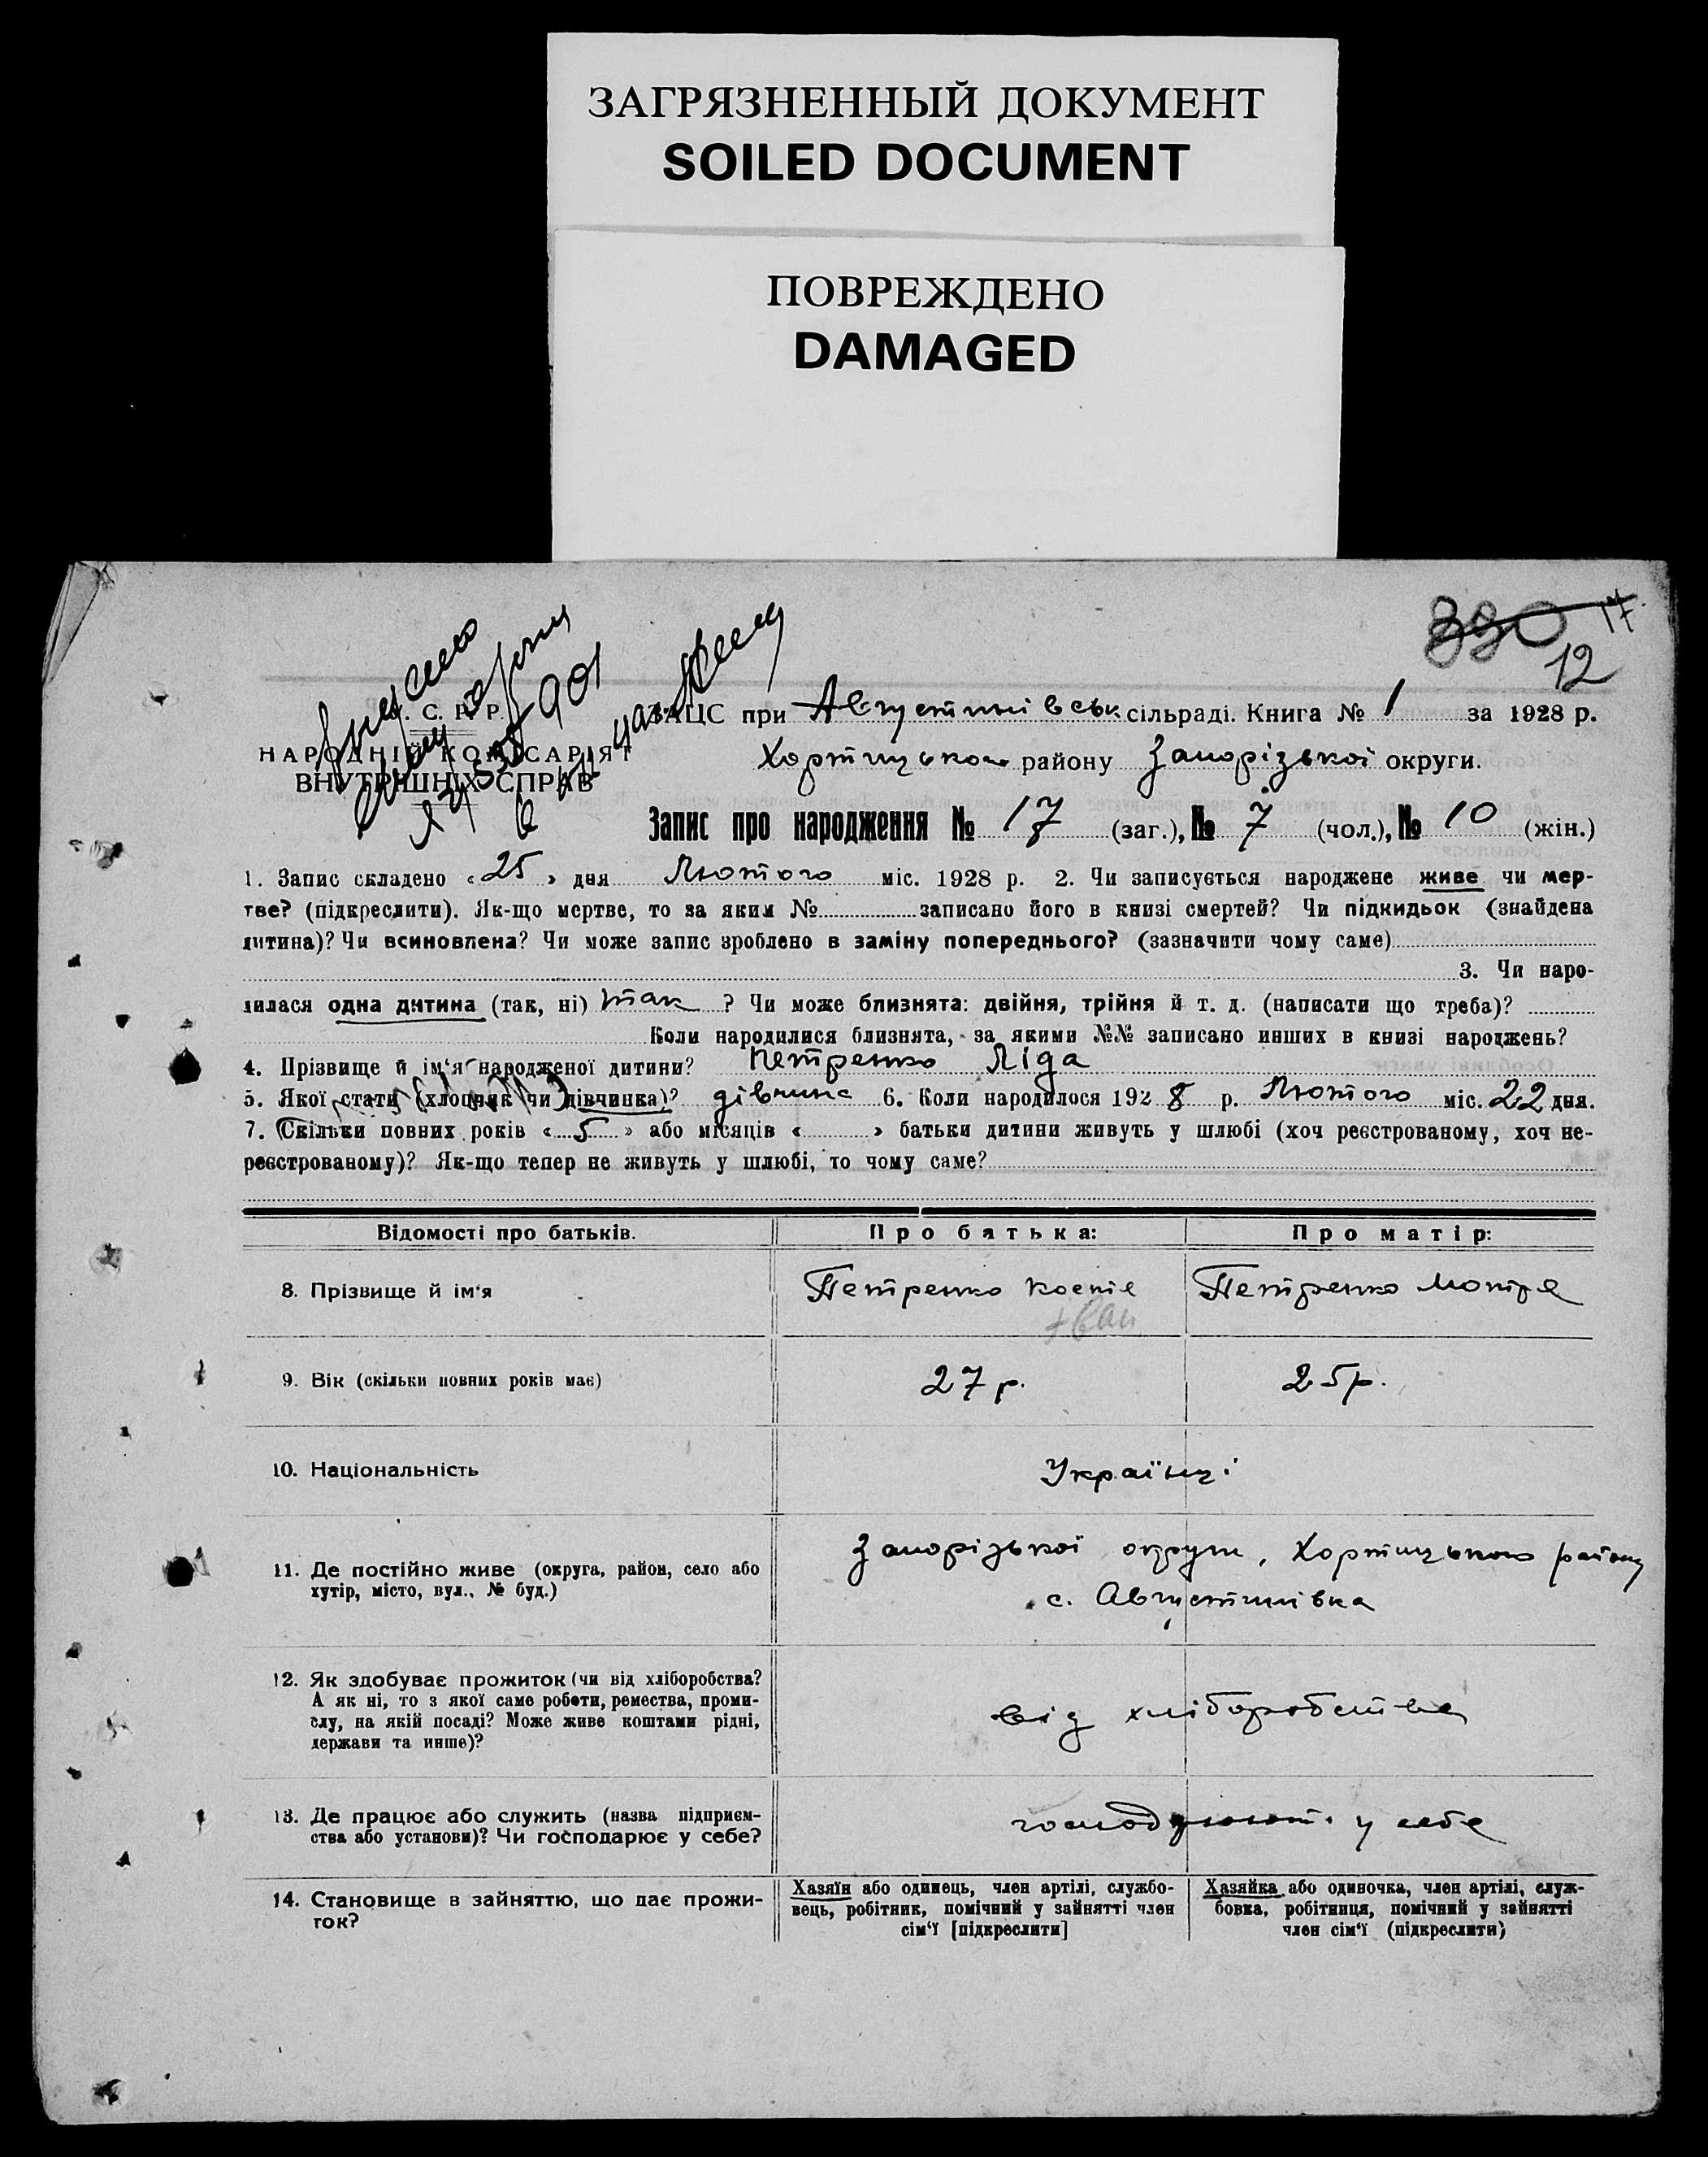 ЗАГРЯЗНЕННЫЙ ДОКУМЕНТ
SOILED DOCUMENT
ПОВРЕЖДЕНО
DAMAGED
390 17.
12
С. Р. Р.
НАРОДНІЙ КОМІСАРІЯТ
ВНУТРІШНІХ СПРАВ
ЗАЦС при Августинівськ сільраді. Книга № 1 за 1928 р.
Хортицького району Запорізької округи.
Запис про народження № 17 (заг.), № 7 (чол.), № 10 (жін.)
1. Запис складено « 25 » дня Лютого міс. 1928 р. 2. Чи записується народжене живе чи мер-
тве? (підкреслити). Як-що мертве, то за яким № записано його в книзі смертей? Чи підкидьок (знайдена
дитина)? Чи всиновлена? Чи може запис зроблено в заміну попереднього? (зазначити чому саме)
3. Чи наро-
дилася одна дитина (так, ні) так ? Чи може близнята: двійня, трійня й т. д. (написати що треба)?
Коли народилися близнята, за якими №№ записано инших в книзі народжень?
4. Прізвище й ім'я народженої дитини? Петренко Ліда
5. Якої стати (хлопчик чи дівчинка)? дівчина 6. Коли народилося 192 8 р. Лютого міс. 22 дня.
7. Скільки повних років « 5 » або місяців « » батьки дитини живуть у шлюбі (хоч реєстрованому, хоч не-
реєстрованому)? Як-що тепер не живуть у шлюбі, то чому саме?
Відомості про батьків. Про батька: Про матір:
8. Прізвище й ім'я Петренко Костя Петренко Мотря
Іван
9. Вік (скільки повних років має) 27 р. 25 р.
10. Національність Українці
11. Де постійно живе (округа, район, село або
хутір, місто, вул., № буд.)
Запорізької округи, Хортицького району
с. Августинівка
12. Як здобуває прожиток (чи від хліборобства?
А як ні, то з якої саме роботи, ремества, проми-
слу, на якій посаді? Може живе коштами рідні,
держави та инше)?
від хліборобства
13. Де працює або служить (назва підприєм-
ства або установи)? Чи господарює у себе?
господрюют. у себе
14. Становище в зайняттю, що дає прожи-
ток?
Хазяїн або одинець, член артілі, службо-
вець, робітник, помічний у зайнятті член
сім'ї [підкреслити]
Хазяйка або одиночка, член артілі, служ-
бовка, робітниця, помічний у зайнятті
член сім'ї (підкреслити)